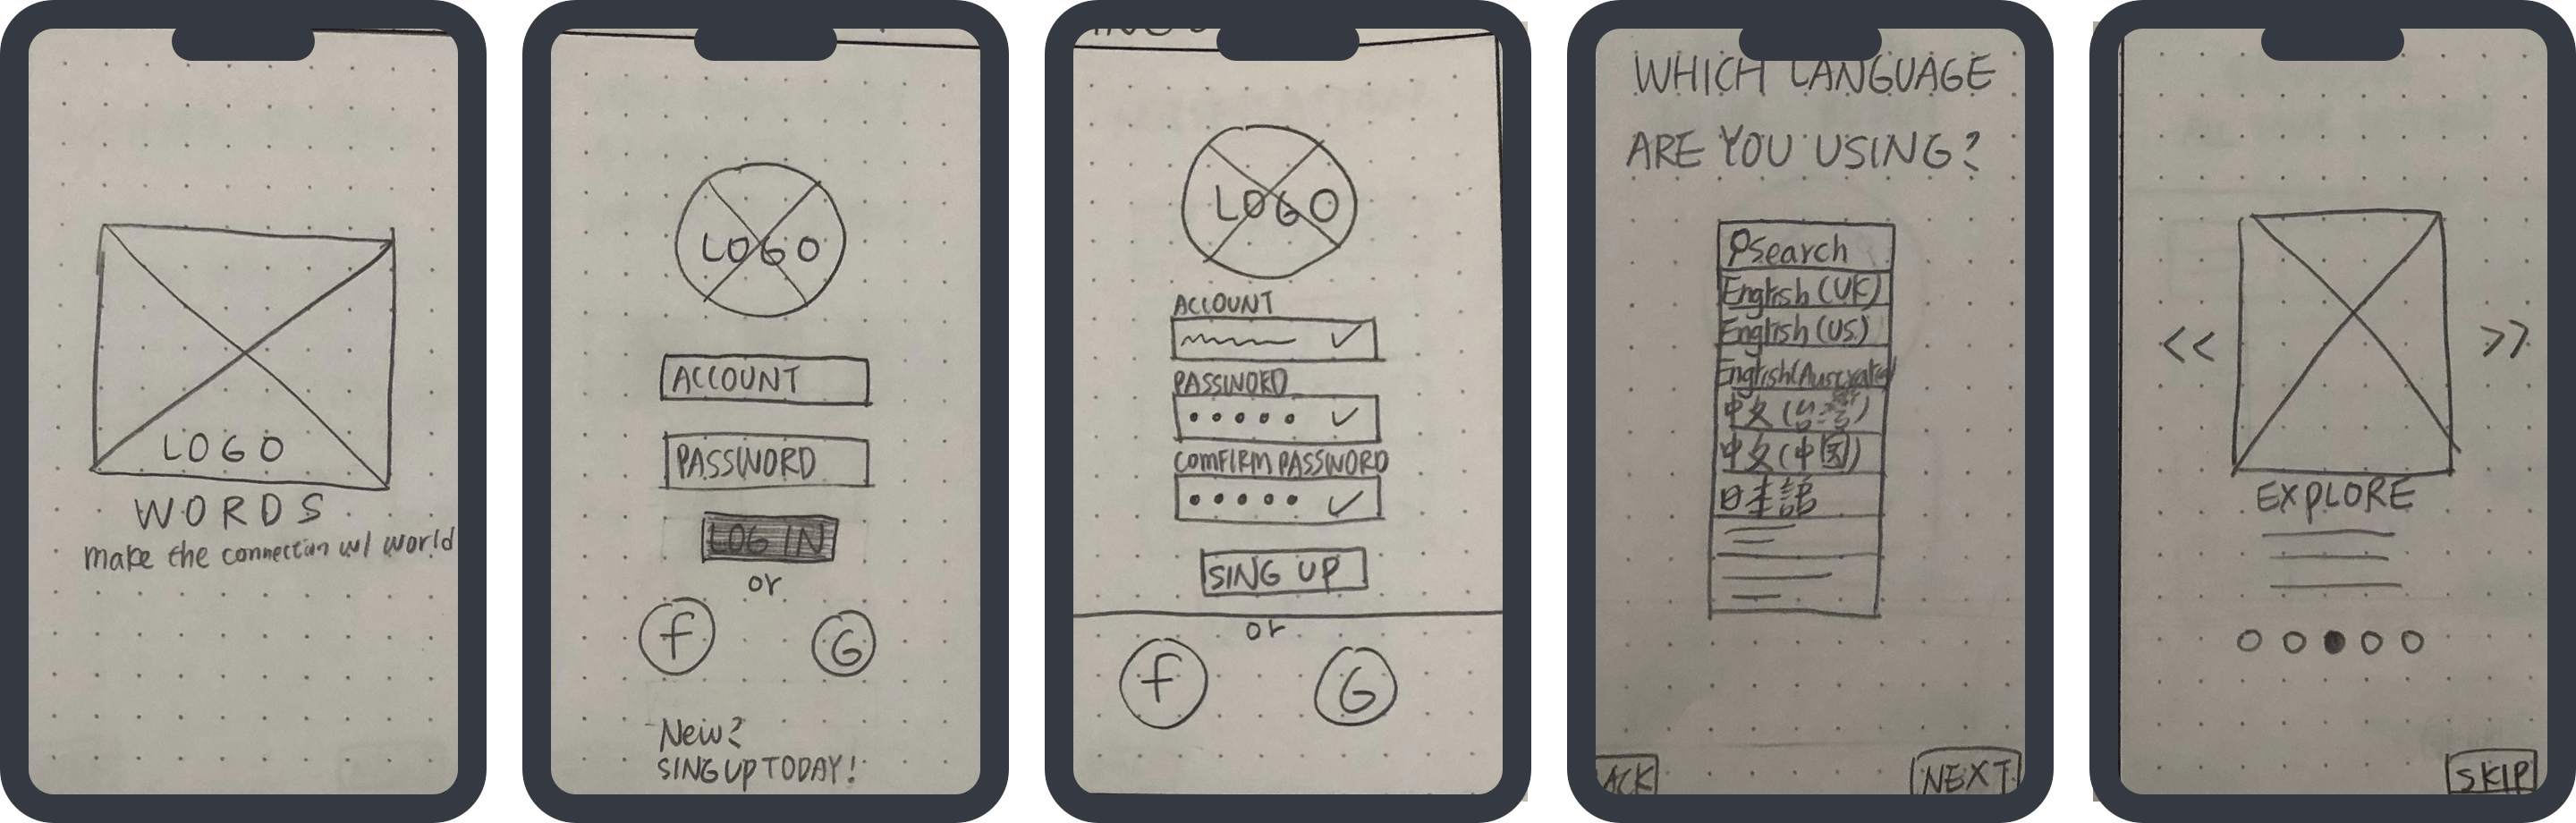 LOGO
WORDS
make the connection w/ world
LOGO
ACCOUNT
PASSWORD
LOG IN
or
f G
New?
SING UP TODAY!
LOGO
ACCOUNT
PASSWORD
COMFIRM PASSWORD
SING UP
or
f G
WHICH LANGUAGE
ARE YOU USING?
Search
English (UK)
English (US)
English (Australia)
中文 (台灣)
中文 (中国)
日本語
ACK NEXT
<< >>
EXPLORE
SKIP